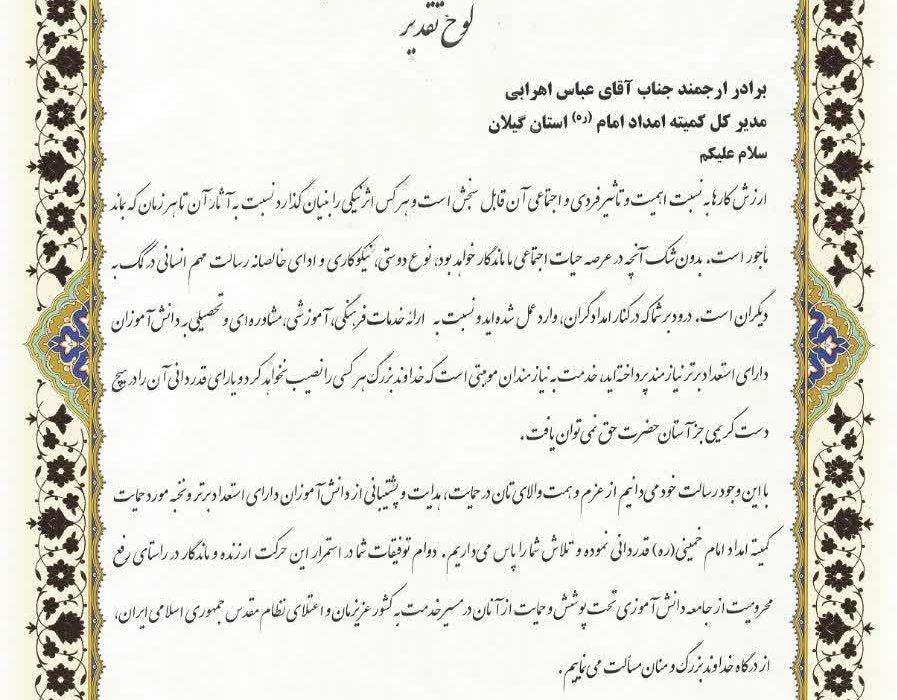 لوح تقدیر
برادر ارجمند جناب آقای عباس اهرابی
مدیر کل کمیته امداد امام (ره) استان گیلان
سلام علیکم
ارزش کارها به نسبت اهمیت و تاثیر فردی و اجتماعی آن قابل سنجش است و هر کس اثر نیکی را بنیان گذارد نسبت به آثار آن تا هر زمان که بماند
مأجور است. بدون شک آنچه در عرصه حیات اجتماعی ما ماندگار خواهد بود، نوع دوستی، نیکوکاری و ادای خالصانه رسالت مهم انسانی در کمک به
دیگران است. درود بر شما که در کنار امدادگران، وارد عمل شده اید و نسبت به ارائه خدمات فرهنگی، آموزشی، مشاوره ای و تحصیلی به دانش آموزان
دارای استعداد برتر نیازمند پرداخته اید، خدمت به نیازمندان موهبتی است که خداوند بزرگ هر کسی را نصیب نخواهد کرد و یارای قدردانی آن را در هیچ
دست کریمی جز آستان حضرت حق نمی توان یافت.
با این وجود رسالت خود می دانیم از عزم و همت والای تان در حمایت، هدایت و پشتیبانی از دانش آموزان دارای استعداد برتر و نخبه مورد حمایت
کمیته امداد امام خمینی (ره) قدردانی نموده و تلاش شما را پاس می داریم. دوام توفیقات شما در استمرار این حرکت ارزنده و ماندگار در راستای رفع
محرومیت از جامعه دانش آموزی تحت پوشش و حمایت از آنان در مسیر خدمت به کشور عزیزمان و اعتلای نظام مقدس جمهوری اسلامی ایران،
از درگاه خداوند بزرگ و منان مسألت می نماییم.